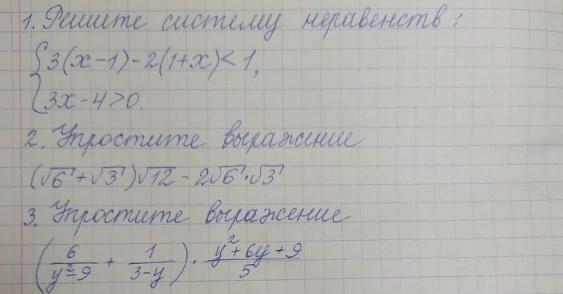 1. Решите систему неравенств:
{3(x-1)-2(1+x)<1,
{3x-4>0.
2. Упростите выражение
(√6+√3)√12-2√6·√3
3. Упростите выражение
(6/(y²-9) + 1/(3-y)) · (y²+6y+9)/5